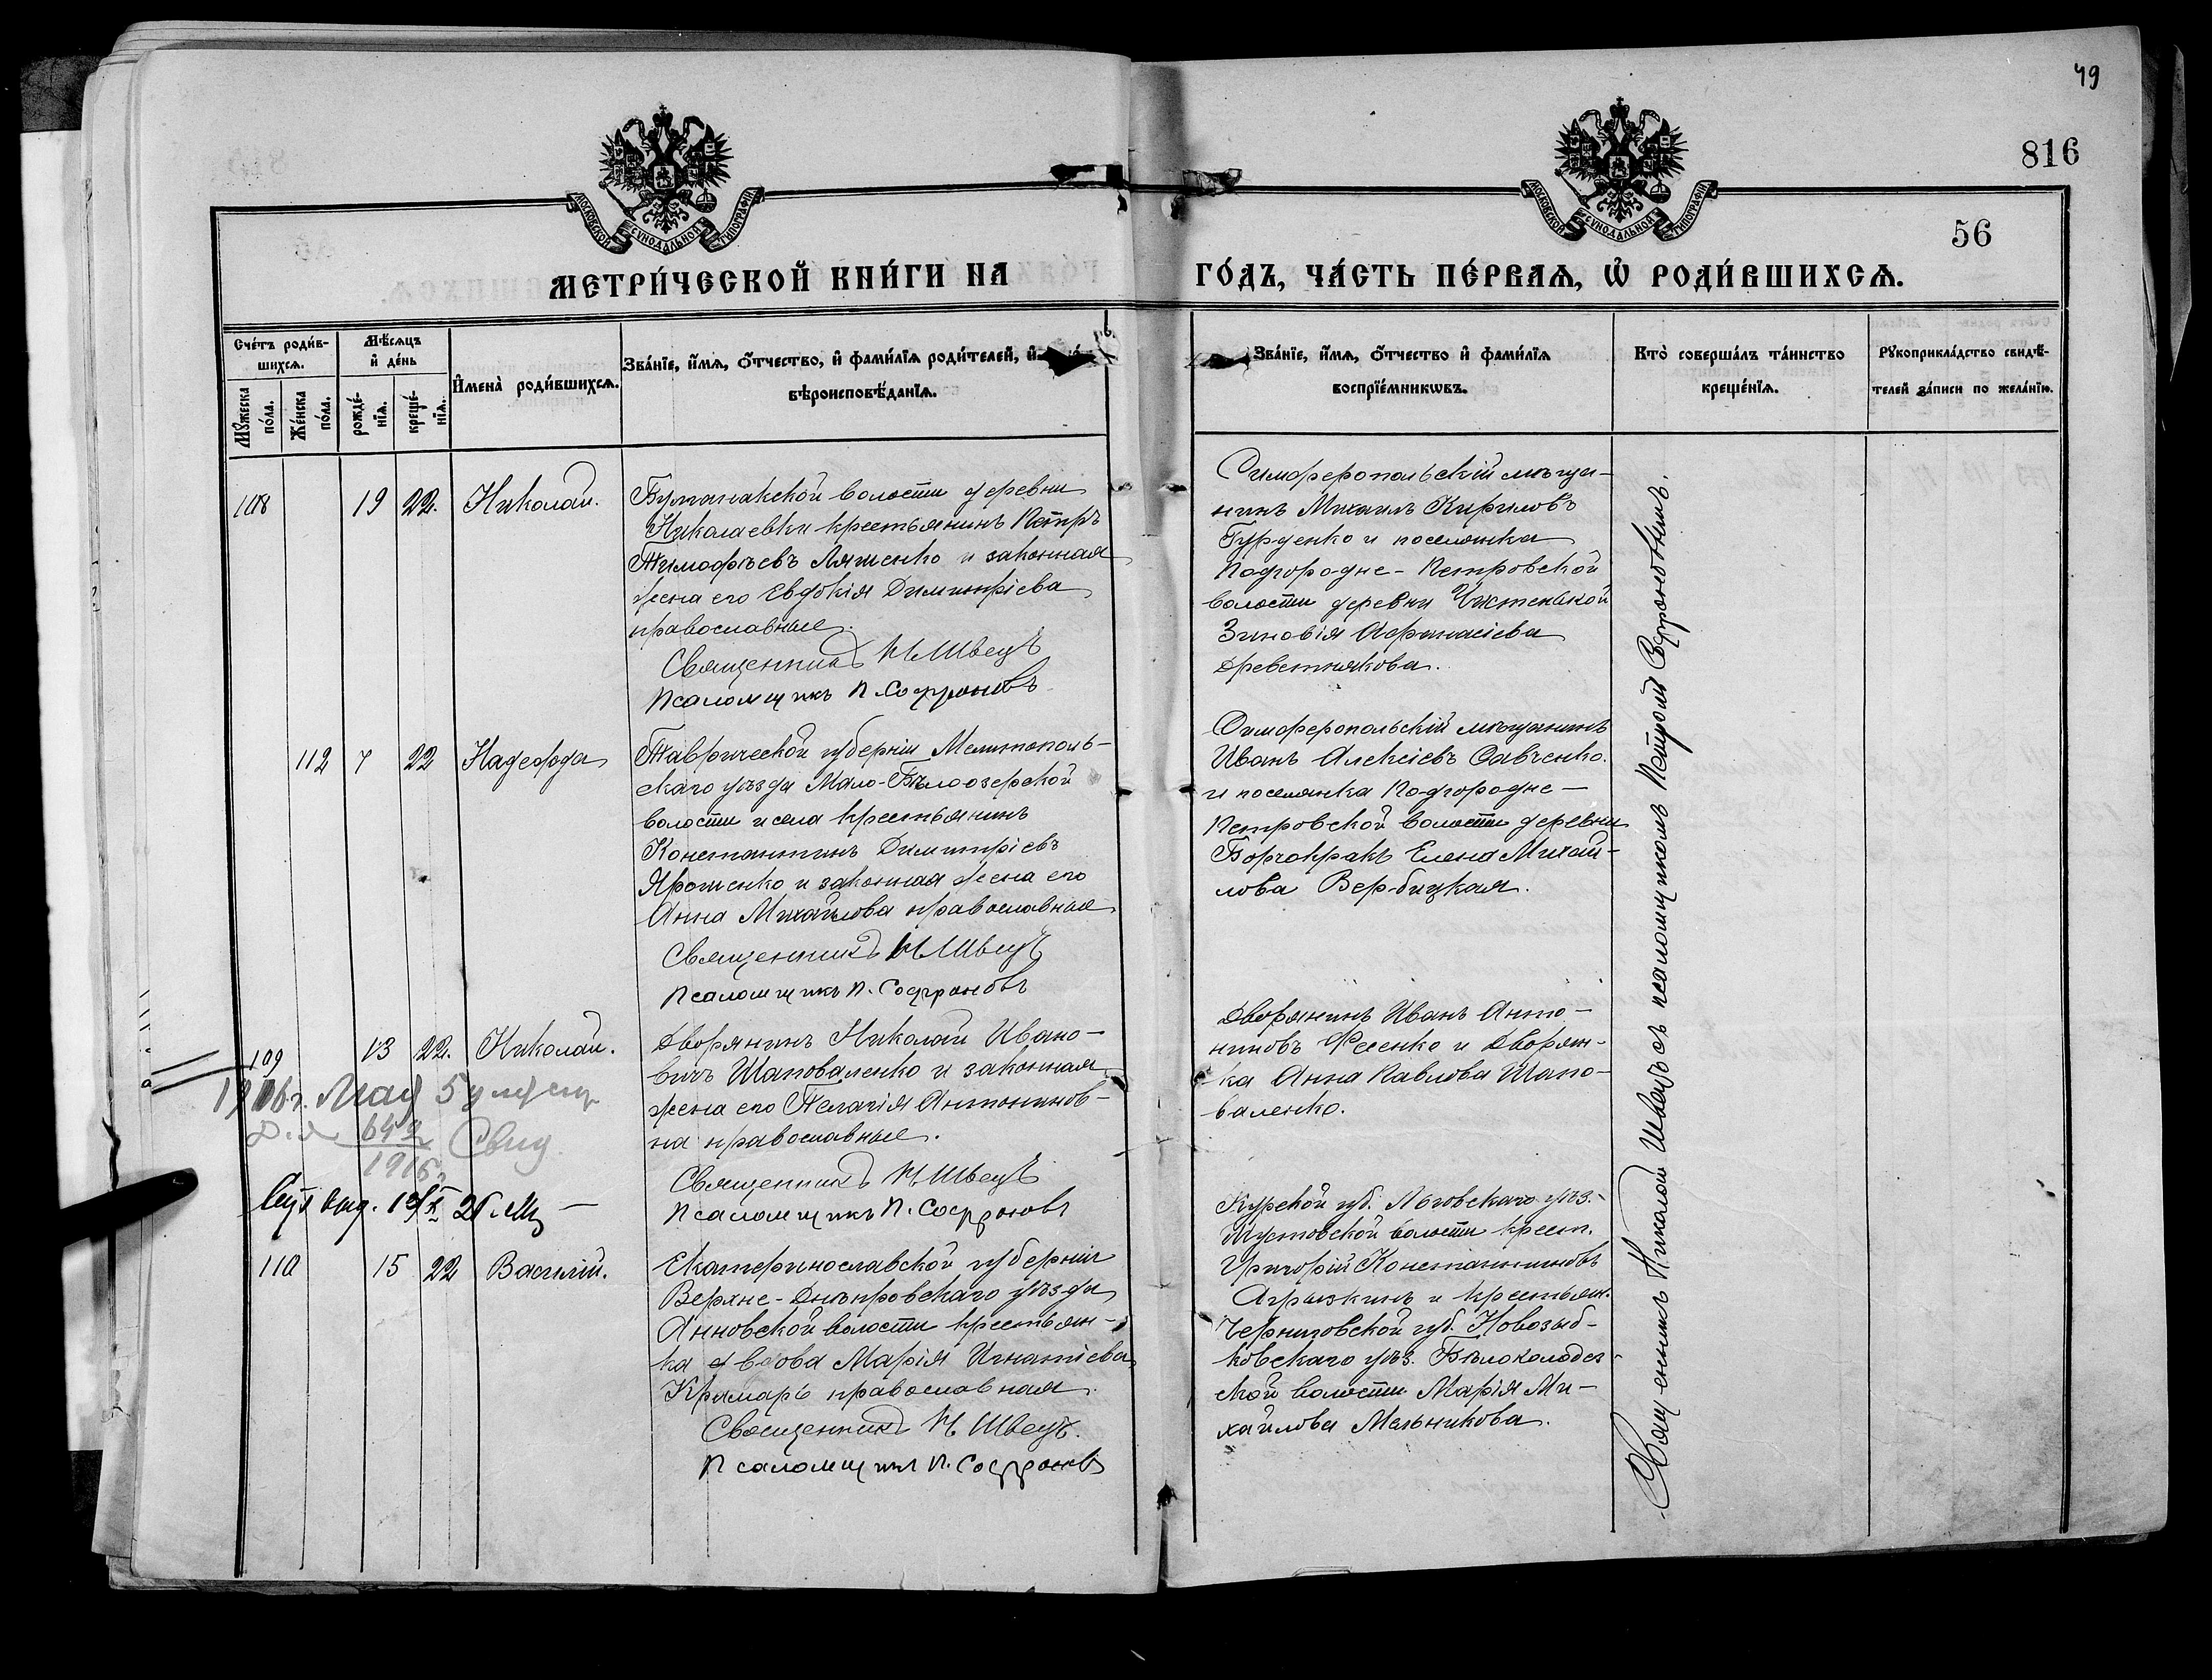 49
816
56
МОСКОВСКОЙ СѴНОДАЛЬНОЙ ТИПОГРАФІИ
МОСКОВСКОЙ СѴНОДАЛЬНОЙ ТИПОГРАФІИ
МЕТРИ́ЧЕСКОЙ КНИ́ГИ НА
ГО́ДЪ, ЧА́СТЬ ПЕ́РВАѦ, Ѡ РОДИ́ВШИХСѦ.
Сче́тъ роди́в-
шихсѧ.
Мѣ́сѧцъ
и҆ де́нь
Мꙋ́жеска
по́ла.
Же́нска
по́ла.
рожде́-
нїѧ.
креще́-
нїѧ.
И҆мена̀ роди́вшихсѧ.
Зва́нїе, и҆́мѧ, ѻ҆́тчество, и҆ фами́лїѧ роди́телей, и҆
вѣроисповѣ́данїѧ.
Зва́нїе, и҆́мѧ, ѻ҆́тчество и҆ фами́лїѧ
воспрїе́мникѡвъ.
Кто̀ соверша́лъ та́инство
креще́нїѧ.
Рꙋкоприкла́дство свидѣ́-
телей за́писи по жела́нїю.
108 19 22. Николай.
Булганакской волости деревни
Николаевки крестьянинъ Петръ
Тимофѣевъ Ляшенко и законная
жена его Евдокія Димитріева
православные.
Священникъ Н Швецъ
Псаломщикъ П. Софроновъ
Симферопольскій мѣща-
нинъ Михаилъ Кириловъ
Гурденко и поселянка
Подгородне-Петровской
волости деревни Чистенькой
Зиновія Афанасіева
Древетнякова.
112 7 22 Надежда
Таврической губерніи Мелитополь-
скаго уѣзда Мало-Бѣлозерской
волости и села крестьянинъ
Константинъ Димитріевъ
Ярошенко и законная жена его
Анна Михайлова православные
Священникъ Н Швецъ
Псаломщикъ П. Софроновъ
Симферопольскій мѣщанинъ
Иванъ Алексіевъ Савченко
и поселянка Подгородне-
Петровской волости деревни
Борчокракъ Елена Михай-
лова Вербицкая.
109 13 22. Николай.
1916 г. Мая 5
649
1916 Свид.
26
Дворянинъ Николай Ивано-
вичъ Шаповаленко и законная
жена его Пелагія Антонинов-
на православные.
Священникъ Н Швецъ
Псаломщикъ П. Софроновъ
Дворянинъ Иванъ Анто-
ниновъ Фесенко и Дворян-
ка Анна Павлова Шапо-
валенко.
110 15 22 Василій.
Екатеринославской губерніи
Верхне-Днѣпровскаго уѣзда
Анновской волости крестьян-
ка вдова Марія Игнатіева
Крамарь православная.
Священникъ Н Швецъ.
Псаломщикъ П. Софроновъ
Курской губ. Льговскаго уѣз.
волости крест.
Григорій Константиновъ
Агрызкинъ и крестьян.
Черниговской губ. Новозыб-
ковскаго уѣз. Бѣлоколодез-
ской волости Марія Ми-
хайлова Мельникова.
Священникъ Николай Швецъ съ псаломщикомъ Петромъ Софроновымъ.